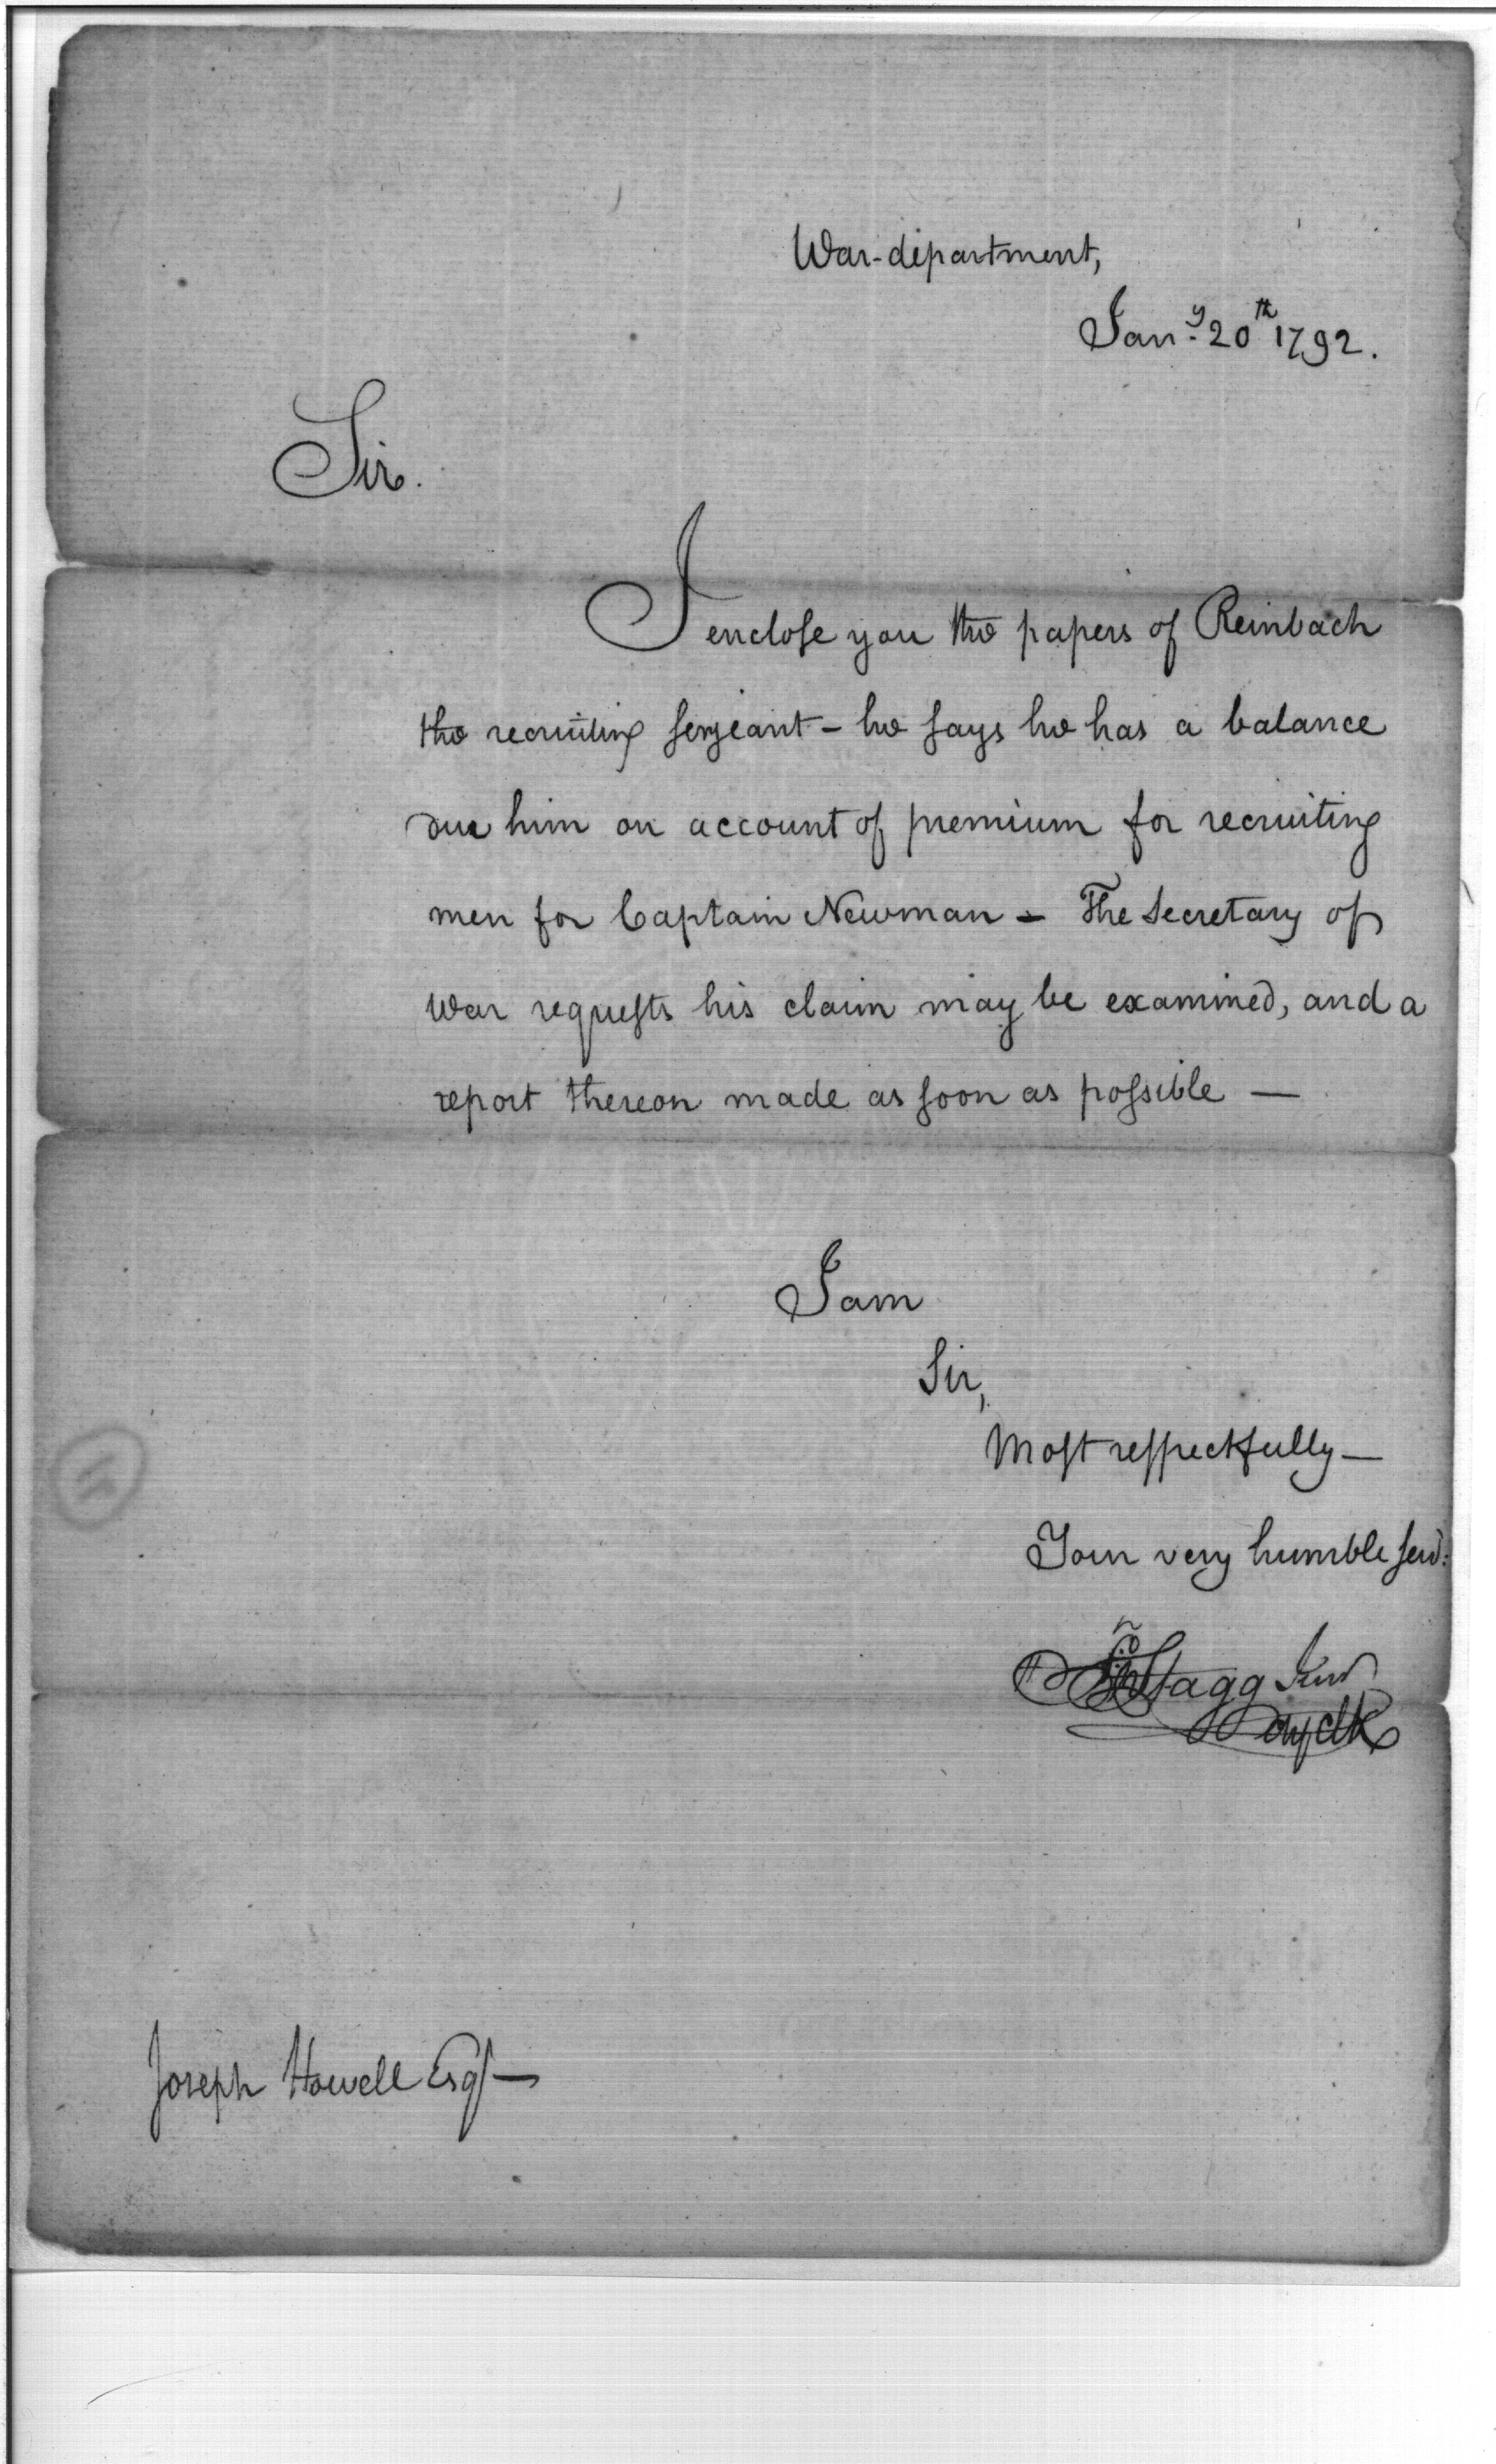 War-department,
Jan.y 20th 1792.
Sir.
I enclose you the papers of Reinbach
the recruiting sergeant - he says he has a balance
due him on account of premium for recruiting
men for Captain Newman - The Secretary of
War requests his claim may be examined, and a
report thereon made as soon as possible —
I am
Sir,
Most respectfully —
Your very humble serv:
Jno Stagg Junr
Joseph Howell Esqr —